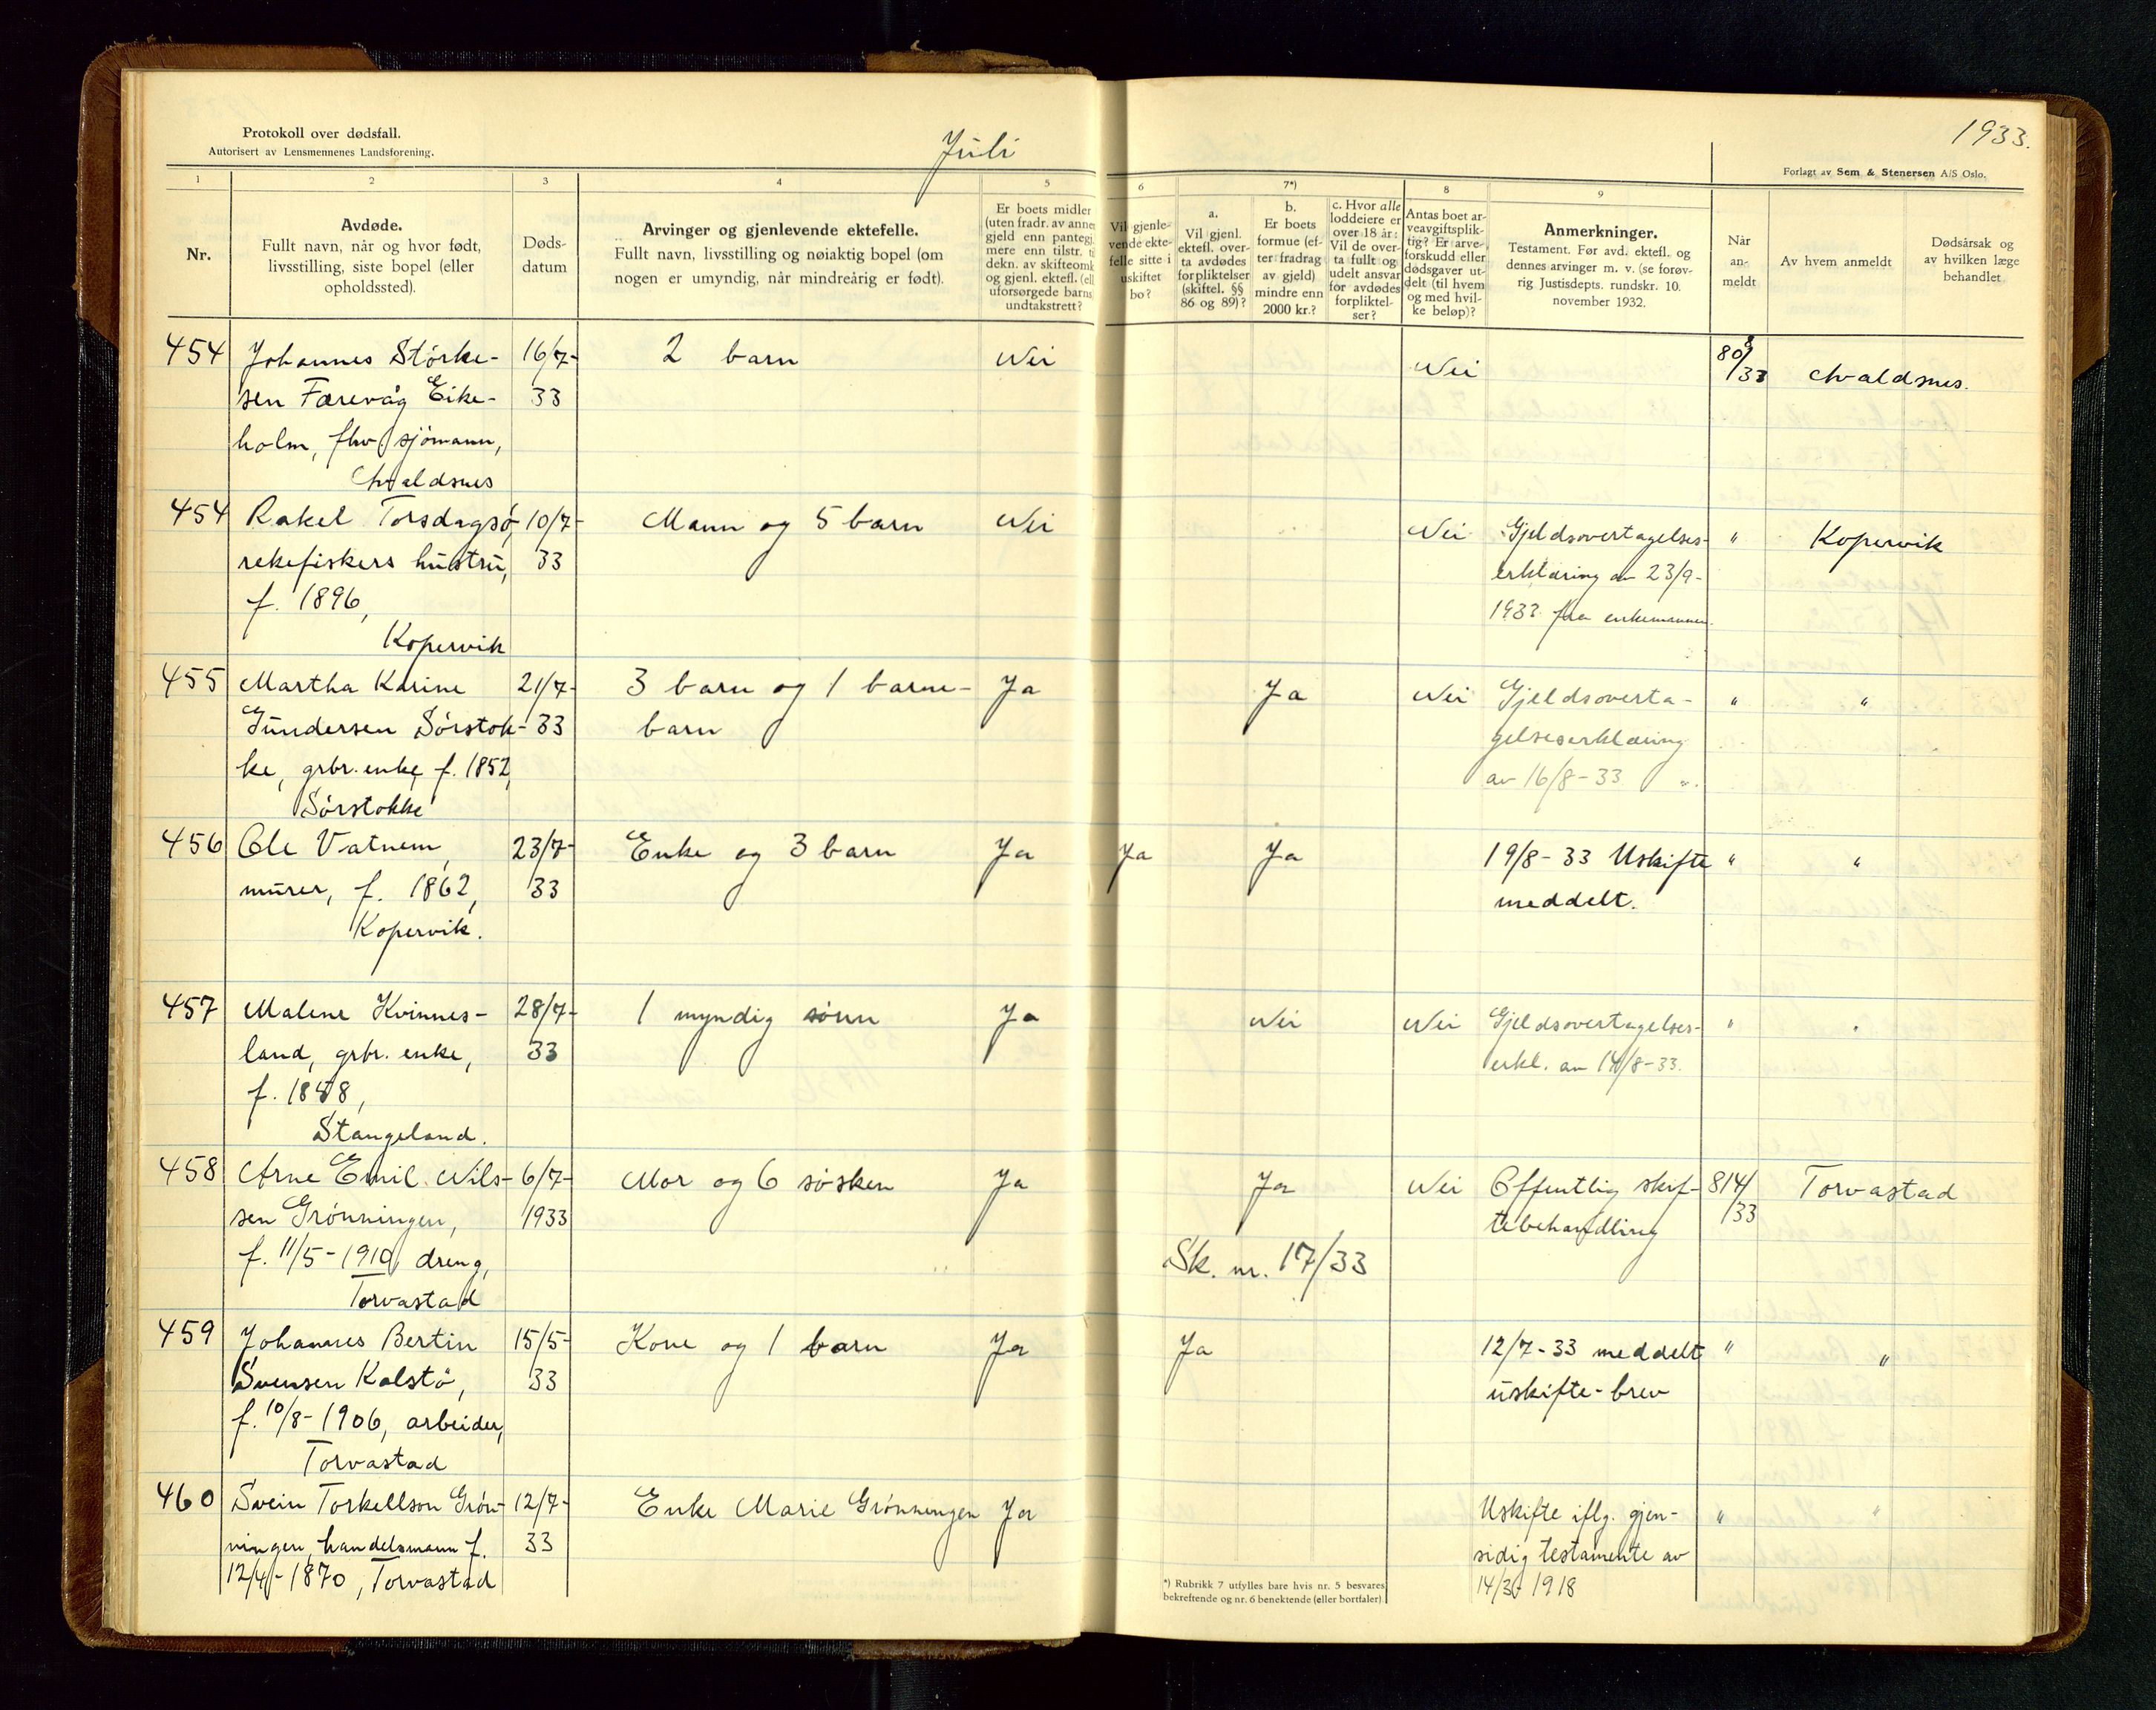 Protokoll over dødsfall.
Autorisert av Lensmennenes Landsforening.
Juli
1933.
Forlagt av Sem & Stenersen A/S Oslo.
1
2
3
4
5
6
7*)
8
9
Nr.
Avdøde.
Fullt navn, når og hvor født,
livsstilling, siste bopel (eller
opholdssted).
Døds-
datum
Arvinger og gjenlevende ektefelle.
Fullt navn, livsstilling og nøiaktig bopel (om
nogen er umyndig, når mindreårig er født).
Er boets midler
(uten fradr. av annen
gjeld enn pantegj.
mere enn tilstr. ti
dekn. av skifteomk
og gjenl. ektefl. (el
uforsørgede barns
undtakstrett?
Vil gjenle-
vende ekte-
felle sitte i
uskiftet
bo?
a.
Vil gjenl.
ektefl. over-
ta avdødes
forpliktelser
(skiftel. §§
86 og 89)?
b.
Er boets
formue (ef-
ter fradrag
av gjeld)
mindre enn
2000 kr.?
c. Hvor alle
loddeiere er
over 18 år:
Vil de over-
ta fullt og
udelt ansvar
for avdødes
forpliktel-
ser?
Antas boet ar-
veavgiftsplik-
tig? Er arve-
forskudd eller
dødsgaver ut-
delt (til hvem
og med hvil-
ke beløp)?
Anmerkninger.
Testament. Før avd. ektefl. og
dennes arvinger m. v. (se forøv-
rig Justisdepts. rundskr. 10.
november 1932.
Når
an-
meldt
Av hvem anmeldt
Dødsårsak og
av hvilken læge
behandlet
454
Johannes Størke-
sen Færevåg Eike-
holm, fhv. sjømann,
Avaldsnes
16/7-
33
2 barn
Nei
Nei
Avaldsnes.
454
Rakel Torsdagsø,
rekefiskers hustru,
f. 1896,
Kopervik
10/7-
33
Mann og 5 barn
Nei
Nei
Gjeldsovertagelses-
erklæring av 23/9-
1933 fra enkemannen.
"
Kopervik
455
Martha Karine
Gundersen Sørstok-
ke, grbr. enke f. 1852,
Sørstokke
21/7-
33
3 barn og 1 barne-
barn
Ja
Ja
Nei
Gjeldsoverta-
gelseserklæring
av 16/8-33
"
"
456
Ole Vatnem,
murer, f. 1862,
Kopervik.
23/7-
33
Enke og 3 barn
Ja
Ja
Ja
19/8-33 Uskifte
meddelt.
"
"
457
Malene Kvinnes-
land, grbr. enke,
f. 1848,
Stangeland.
28/7-
33
1 myndig sønn
Ja
Nei
Nei
Gjeldsovertagelses-
erkl. av 14/8-33.
"
"
458
Arne Emil Nils-
sen Grønningen,
f. 11/5-1910, dreng,
Torvastad
6/7-
1933
Mor og 6 søsken
Ja
Ja
Sk. nr. 17/33
Nei
Offentlig skif-
tebehandling
814/
/33
Torvastad
459
Johannes Bertin
Svensen Kalstø,
f. 10/8-1906, arbeider,
Torvastad
15/5-
33
Kone og 1 barn
Ja
Ja
12/7-33 meddelt
uskifte-brev
"
"
460
Svein Torkellson Grøn-
ningen, handelsmann f.
12/4-1870, Torvastad
12/7-
33
Enke Marie Grønningen
Ja
Uskifte iflg. gjen-
sidig testamente av
14/3-1918
"
"
*) Rubrikk 7 utfylles bare hvis nr. 5 besvares
bekreftende og nr. 6 benektende (eller bortfaller).